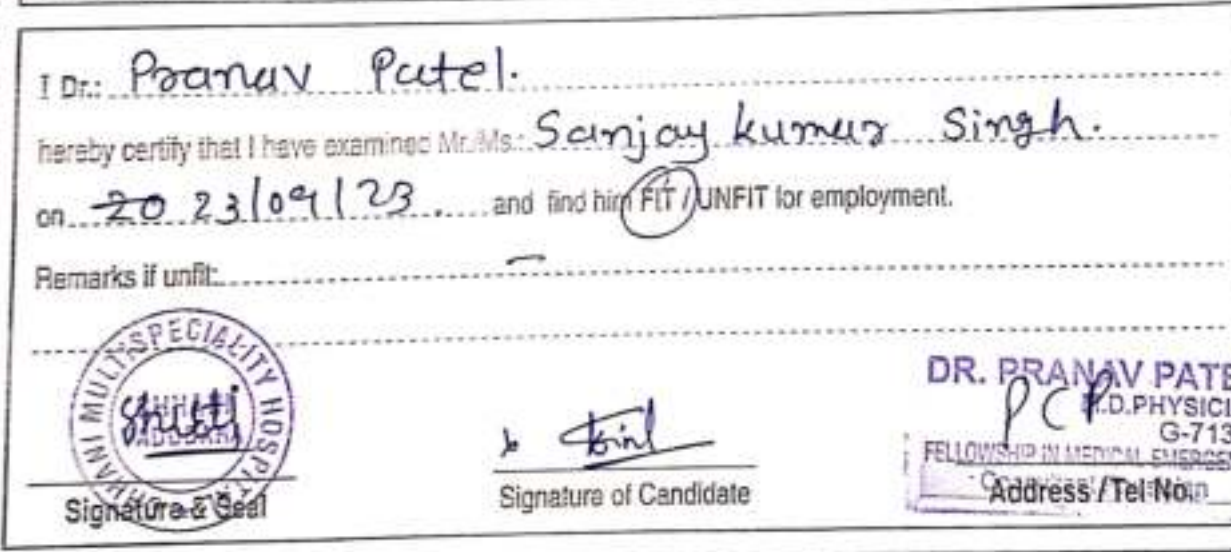 I Dr.: Pranav Patel.
hereby certify that I have examined Mr./Ms.: Sanjay kumar Singh.
on 20 23/09/23 . and find him FIT / UNFIT for employment.
Remarks if unfit: —
MULTISPECIALITY HOSPITAL
Signature & Seal
Signature of Candidate
DR. PRANAV PATE
M.D.PHYSICI
G-713
PCP
FELLOWSHIP IN MEDICAL EMERGEN
Address / Tel No.